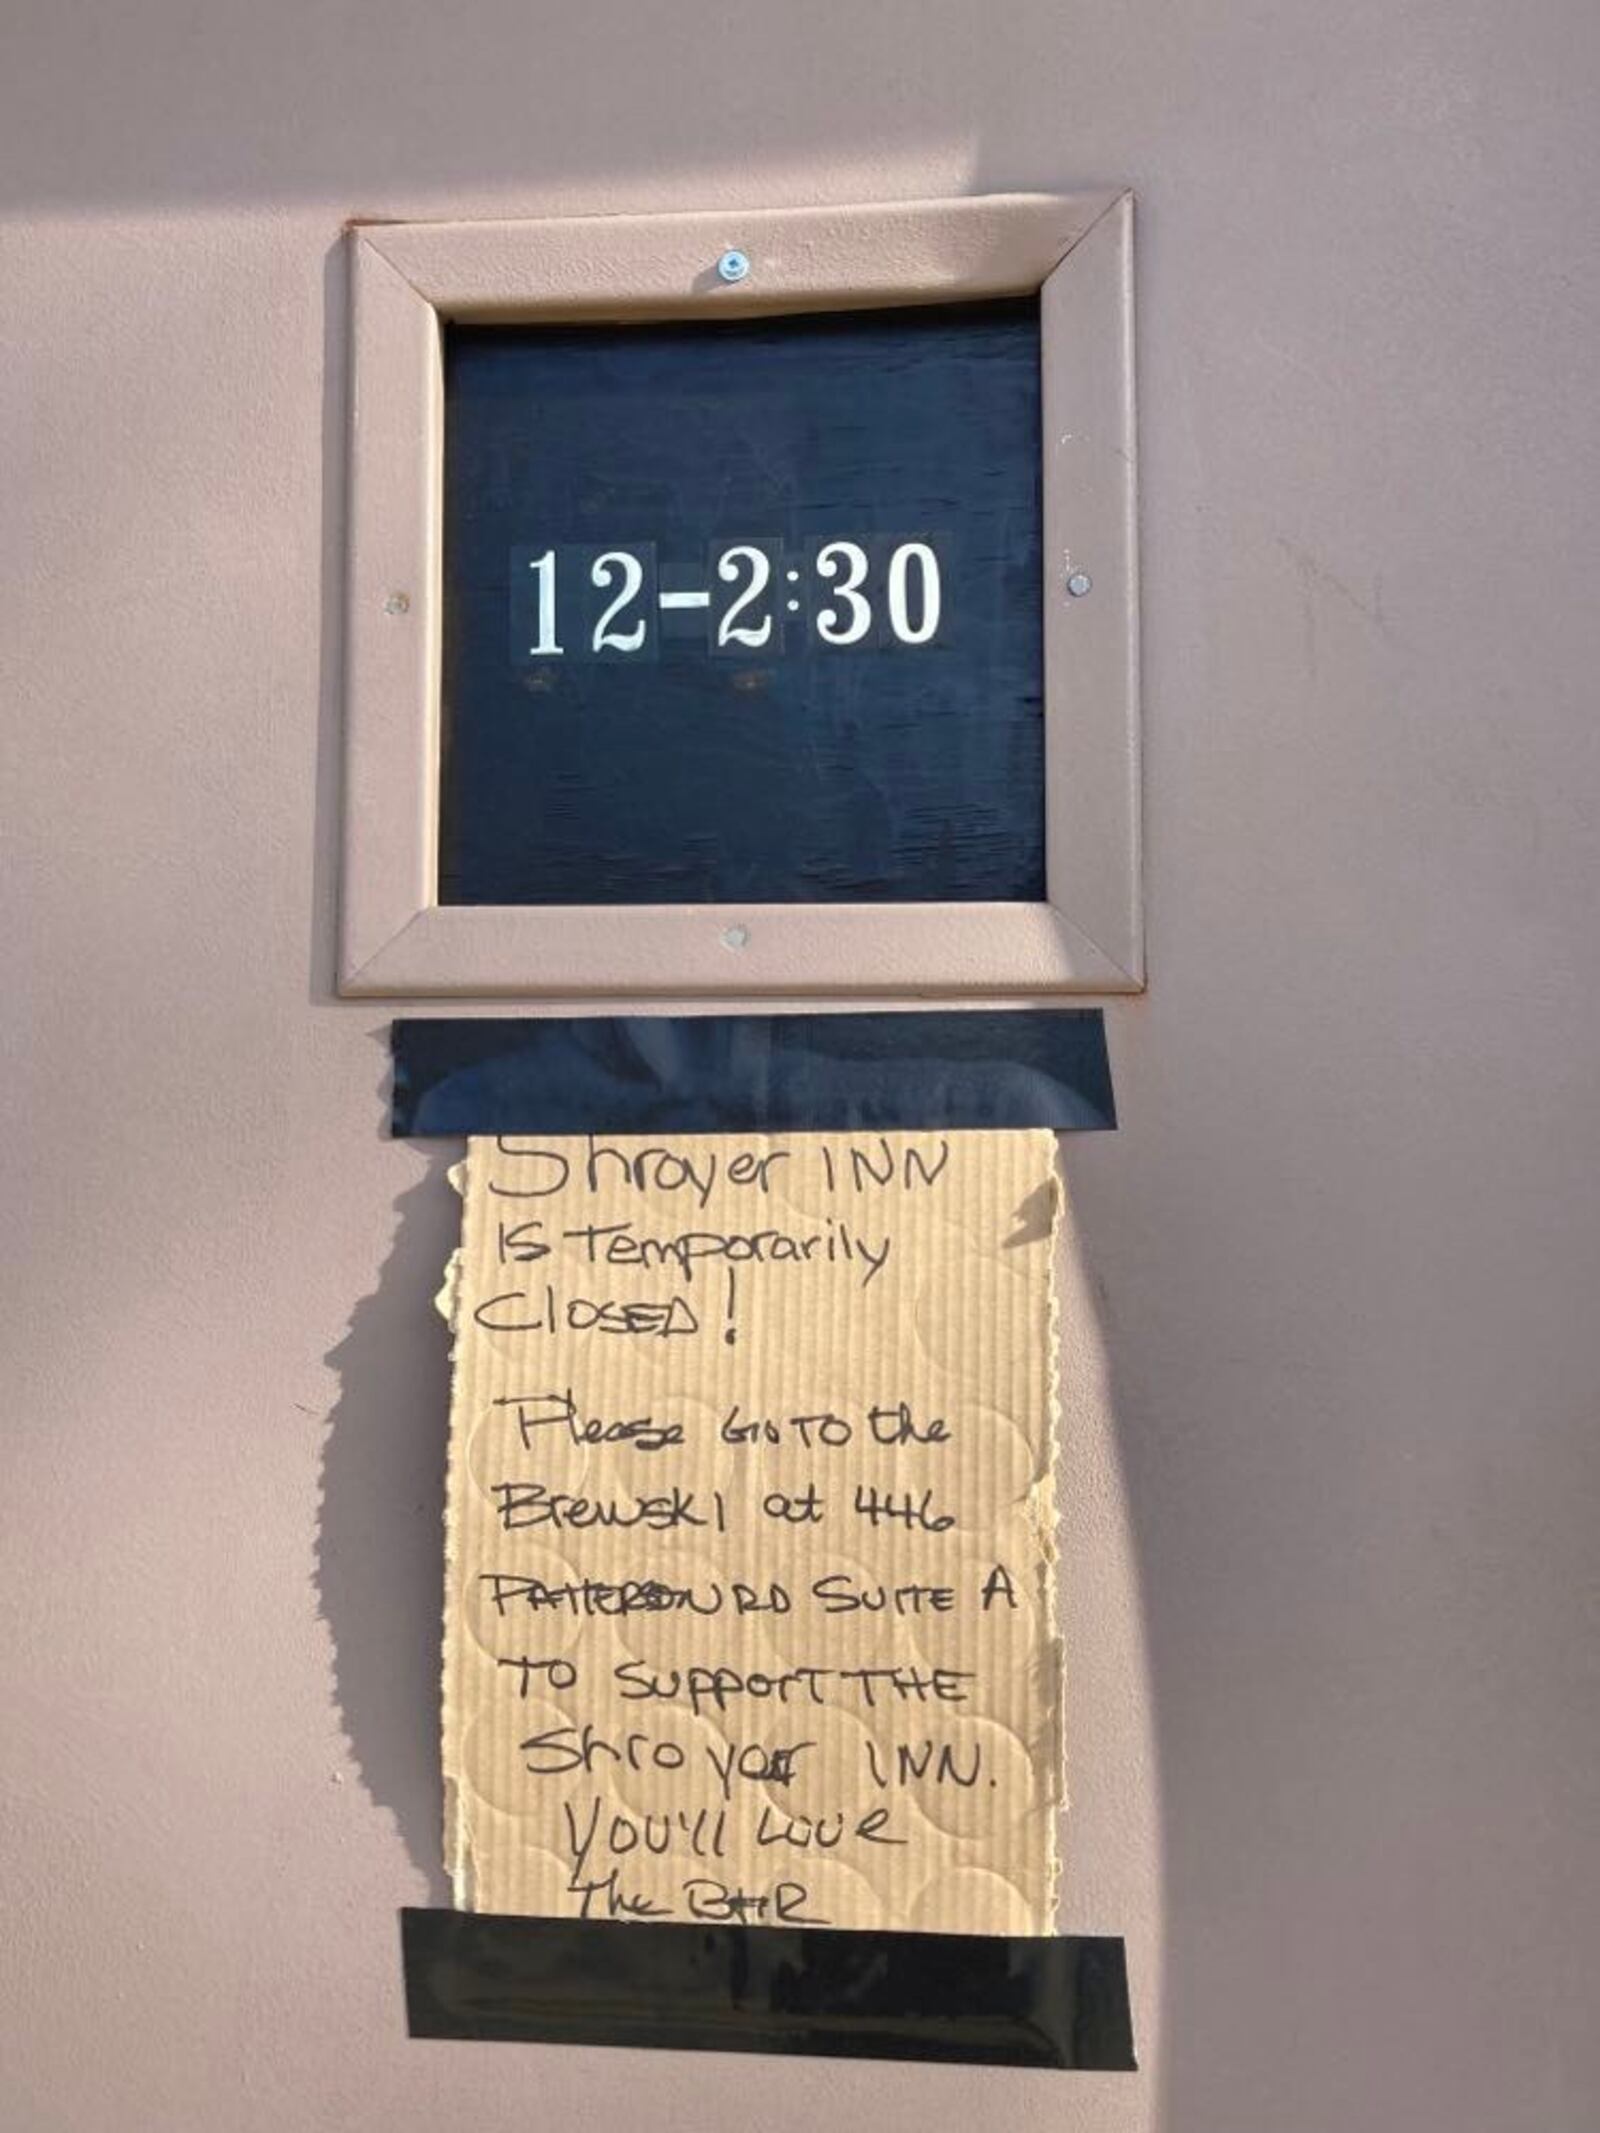 12-2:30
Shroyer INN
IS Temporarily
Closed!
Please Go TO the
Brewski at 446
PATTERSON RD SUITE A
TO SUPPORT THE
Shroyer INN.
You'll Love
The BAR